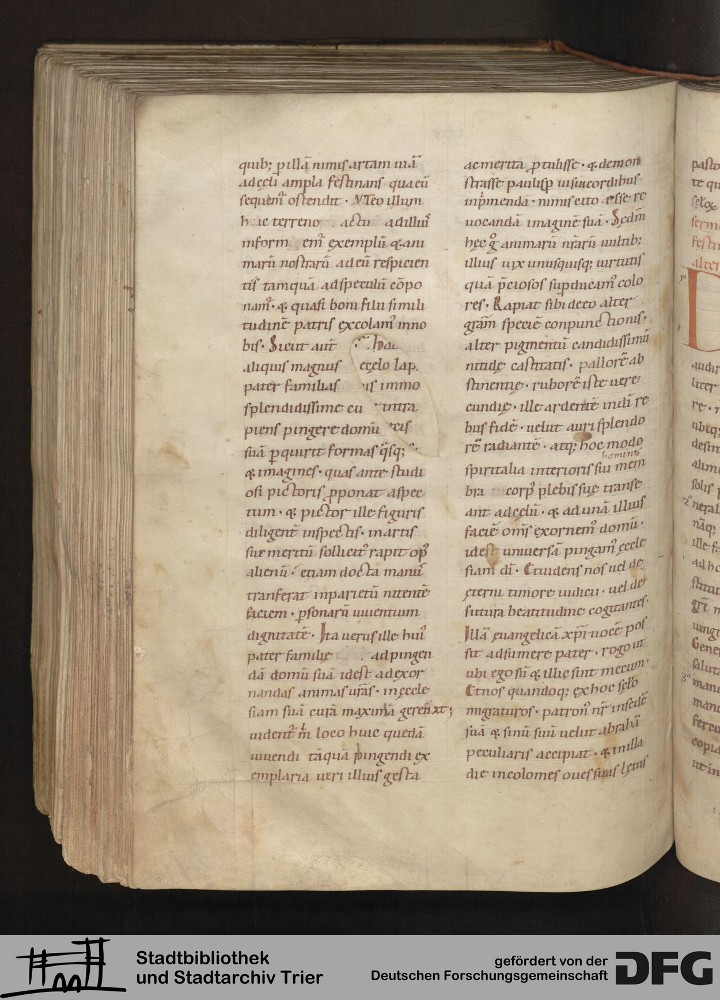 quib; p illā nimis artam uiā
ad cęli ampla festinans quaeū
sequem̄ ostendit · N
huic terreno actu ad illiū
inform em̄ exemplū & ani
marū nostrarū ad eū respicien
tis tamquā ad speculū cōpo
nam̄ · & quasi boni filii simili
tudinē patris excolam̄ in no
bis · Sicut aut̄ hac
aliquis magnus e cęlo lap.
pater familias is immo
splendidissime cu intra
piens pingere domū cis
suā pquirit formas qsq;
& imagines · quas ante studi
osi pictoris pponat aspec
tum · & pictor ille figuris
diligent̄ inspectis · in artis
suę meritū sollicit᷒ rapit op᷒
alienū · etiam docta manu
tranferat in parietū nitentē
faciem · psonarū uiuentium
dignitatē · Ita uerus ille hui᷒
pater familię ad pingen
dā domū suā idest ad exor
nandas animas urās · in ęcle
siam suā curā maximā
uident̄ in loco huic quedā
uiuendi tāquā pingendi ex
emplaria uiri illius gesta
ac merita ptulisse · & demon
strasse paulisp uisuicordibus
inpmendā · nimis cito esse re
uocandā imaginē suā · Sed in
hęc g animarū nrarū uultib;
illius uix unusquisq; uirtutis
quā pciosos supducam̄ colo
res · Rapiat sibi deco alter
gnam speciē conpunctionis ·
alter pigmentū candidissimū
nitidę castitatis · pallorē ab
stinentię · ruborē iste uere
cundię · ille ardentē in dn̄i re
bus fidē · uelut auri splendo
rē radiantē · atq; hoc modo
harum
spiritalia interioris sui mem
bra corp plebis suę transe
ant ad cęlū · & ad unā illius
faciē om̄s exornem̄ domū ·
idest uniuersā pingam̄ ęccle
siam di · Et uidens nos uel de
ęterni timore iudicii · uel de
futura beatitudine cogitantes ·
Illā euangelicā xpi uocē pos
sit adsumere pater · rogo ut
ubi ego sū & illic sint mecum ·
Et nos quandoq; ex hoc sclo
migraturos · patron᷒ nr in sedē
suā & sinū suū uelut abrahā
peculiaris accipiat · & in illa
die incolomes oues suas lętus
pasto
te qu
sclox
serm
festi
alter
audir
liter
re · n
ubiq;
destin
alim
solis
neral
nāq;
ille fa
ad hc
stitut
grē n
uirgi
Gene
saluta
manu
mane
feren
copia
ut in
Stadtbibliothek
und Stadtarchiv Trier
gefördert von der
Deutschen Forschungsgemeinschaft
DFG